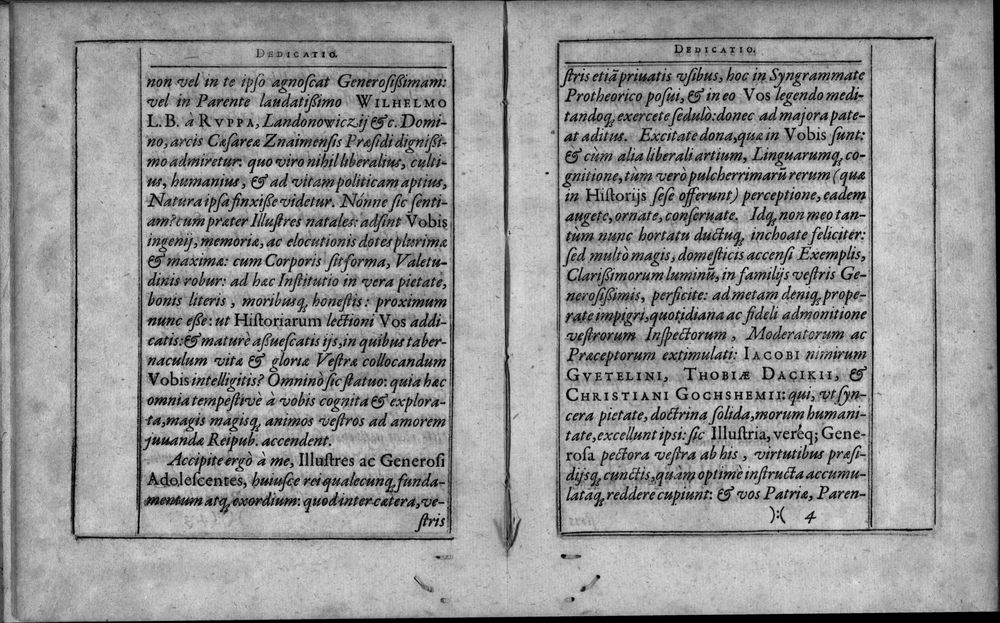 DEDICATIO.
non vel in te ipso agnoscat Generosißimam:
vel in Parente laudatißimo WILHELMO
L. B. à RVPPA, Landonowiczij &c. Domi-
no, arcis Cæsareæ Znaimensis Præsidi dignißi-
mo admiretur: quo viro nihil liberalius, culti-
us, humanius, & ad vitam politicam aptius,
Natura ipsa finxiße videtur. Nónne sic senti-
am? cum præter Illustres natales: adsint Vobis
ingenij, memoriæ, ac elocutionis dotes plurimæ
& maximæ: cum Corporis sit forma, Valetu-
dinis robur: ad hæc Institutio in vera pietate,
bonis literis, moribusq́, honestis: proximum
nunc eße: ut Historiarum lectioni Vos addi-
catis: & maturè aßuescatis ijs, in quibus taber-
naculum vitæ & gloriæ Vestræ collocandum
Vobis intelligitis? Omninò sic statuo: quia hæc
omnia tempestivè à vobis cognita & explora-
ta, magis magisq́, animos vestros ad amorem
juuandæ Reipub. accendent.
Accipite ergò à me, Illustres ac Generosi
Adolescentes, huiusce rei qualecunq́, funda-
mentum atq́, exordium: quod inter cætera, ve-
stris
DEDICATIO.
stris etiã priuatis vsibus, hoc in Syngrammate
Protheorico posui, & in eo Vos legendo medi-
tandoq́, exercete sedulò: donec ad majora pate-
at aditus. Excitate dona, quæ in Vobis sunt:
& cùm alia liberali artium, Linguarumq́, co-
gnitione, tùm verò pulcherrimarũ rerum (quæ
in Historijs sese offerunt) perceptione, eadem
augete, ornate, conseruate. Idq́, non meo tan-
tùm nunc hortatu ductuq́, inchoate feliciter:
sed multò magis, domesticis accensi Exemplis,
Clarißimorum luminũ, in familijs vestris Ge-
nerosißimis, perficite: ad metam deniq́, prope-
rate impigri, quotidiana ac fideli admonitione
vestrorum Inspectorum, Moderatorum ac
Præceptorum extimulati: IACOBI nimirum
GVETELINI, THOBIÆ DACIKII, &
CHRISTIANI GOCHSHEMII: qui, vt syn-
cera pietate, doctrina solida, morum humani-
tate, excellunt ipsi: sic Illustria, veréq; Gene-
rosa pectora vestra ab his, virtutibus præsi-
dijsq́, cunctis, quàm optimè instructa accumu-
lataq́, reddere cupiunt: & vos Patriæ, Paren-
):( 4